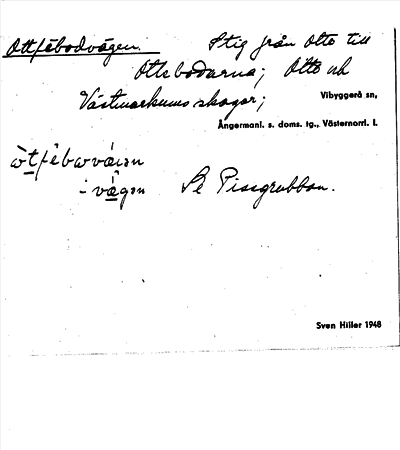 Ottfäbodvägen. Stig från Otto till
Ottsbodarna; Otto och
Västmarkums skogar; Vibyggerå sn,
Ångermanl. s. doms. tg., Västernorrl. l.
- vägen Se Pissgrubban.
Sven Hiller 1948